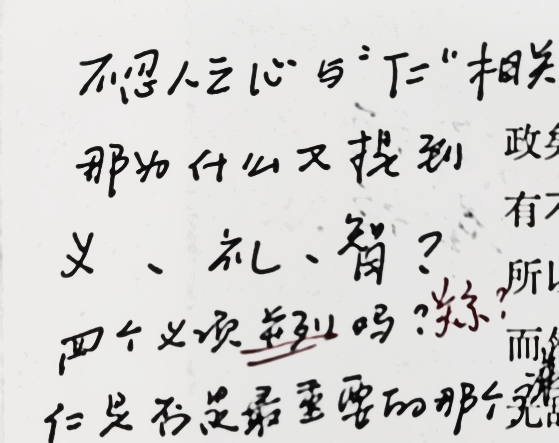 不忍人之心与“仁”相关
那为什么又提到
义、礼、智？
四个必须并列吗？关系？
仁是不是最重要的那个
政
有不
所以
而